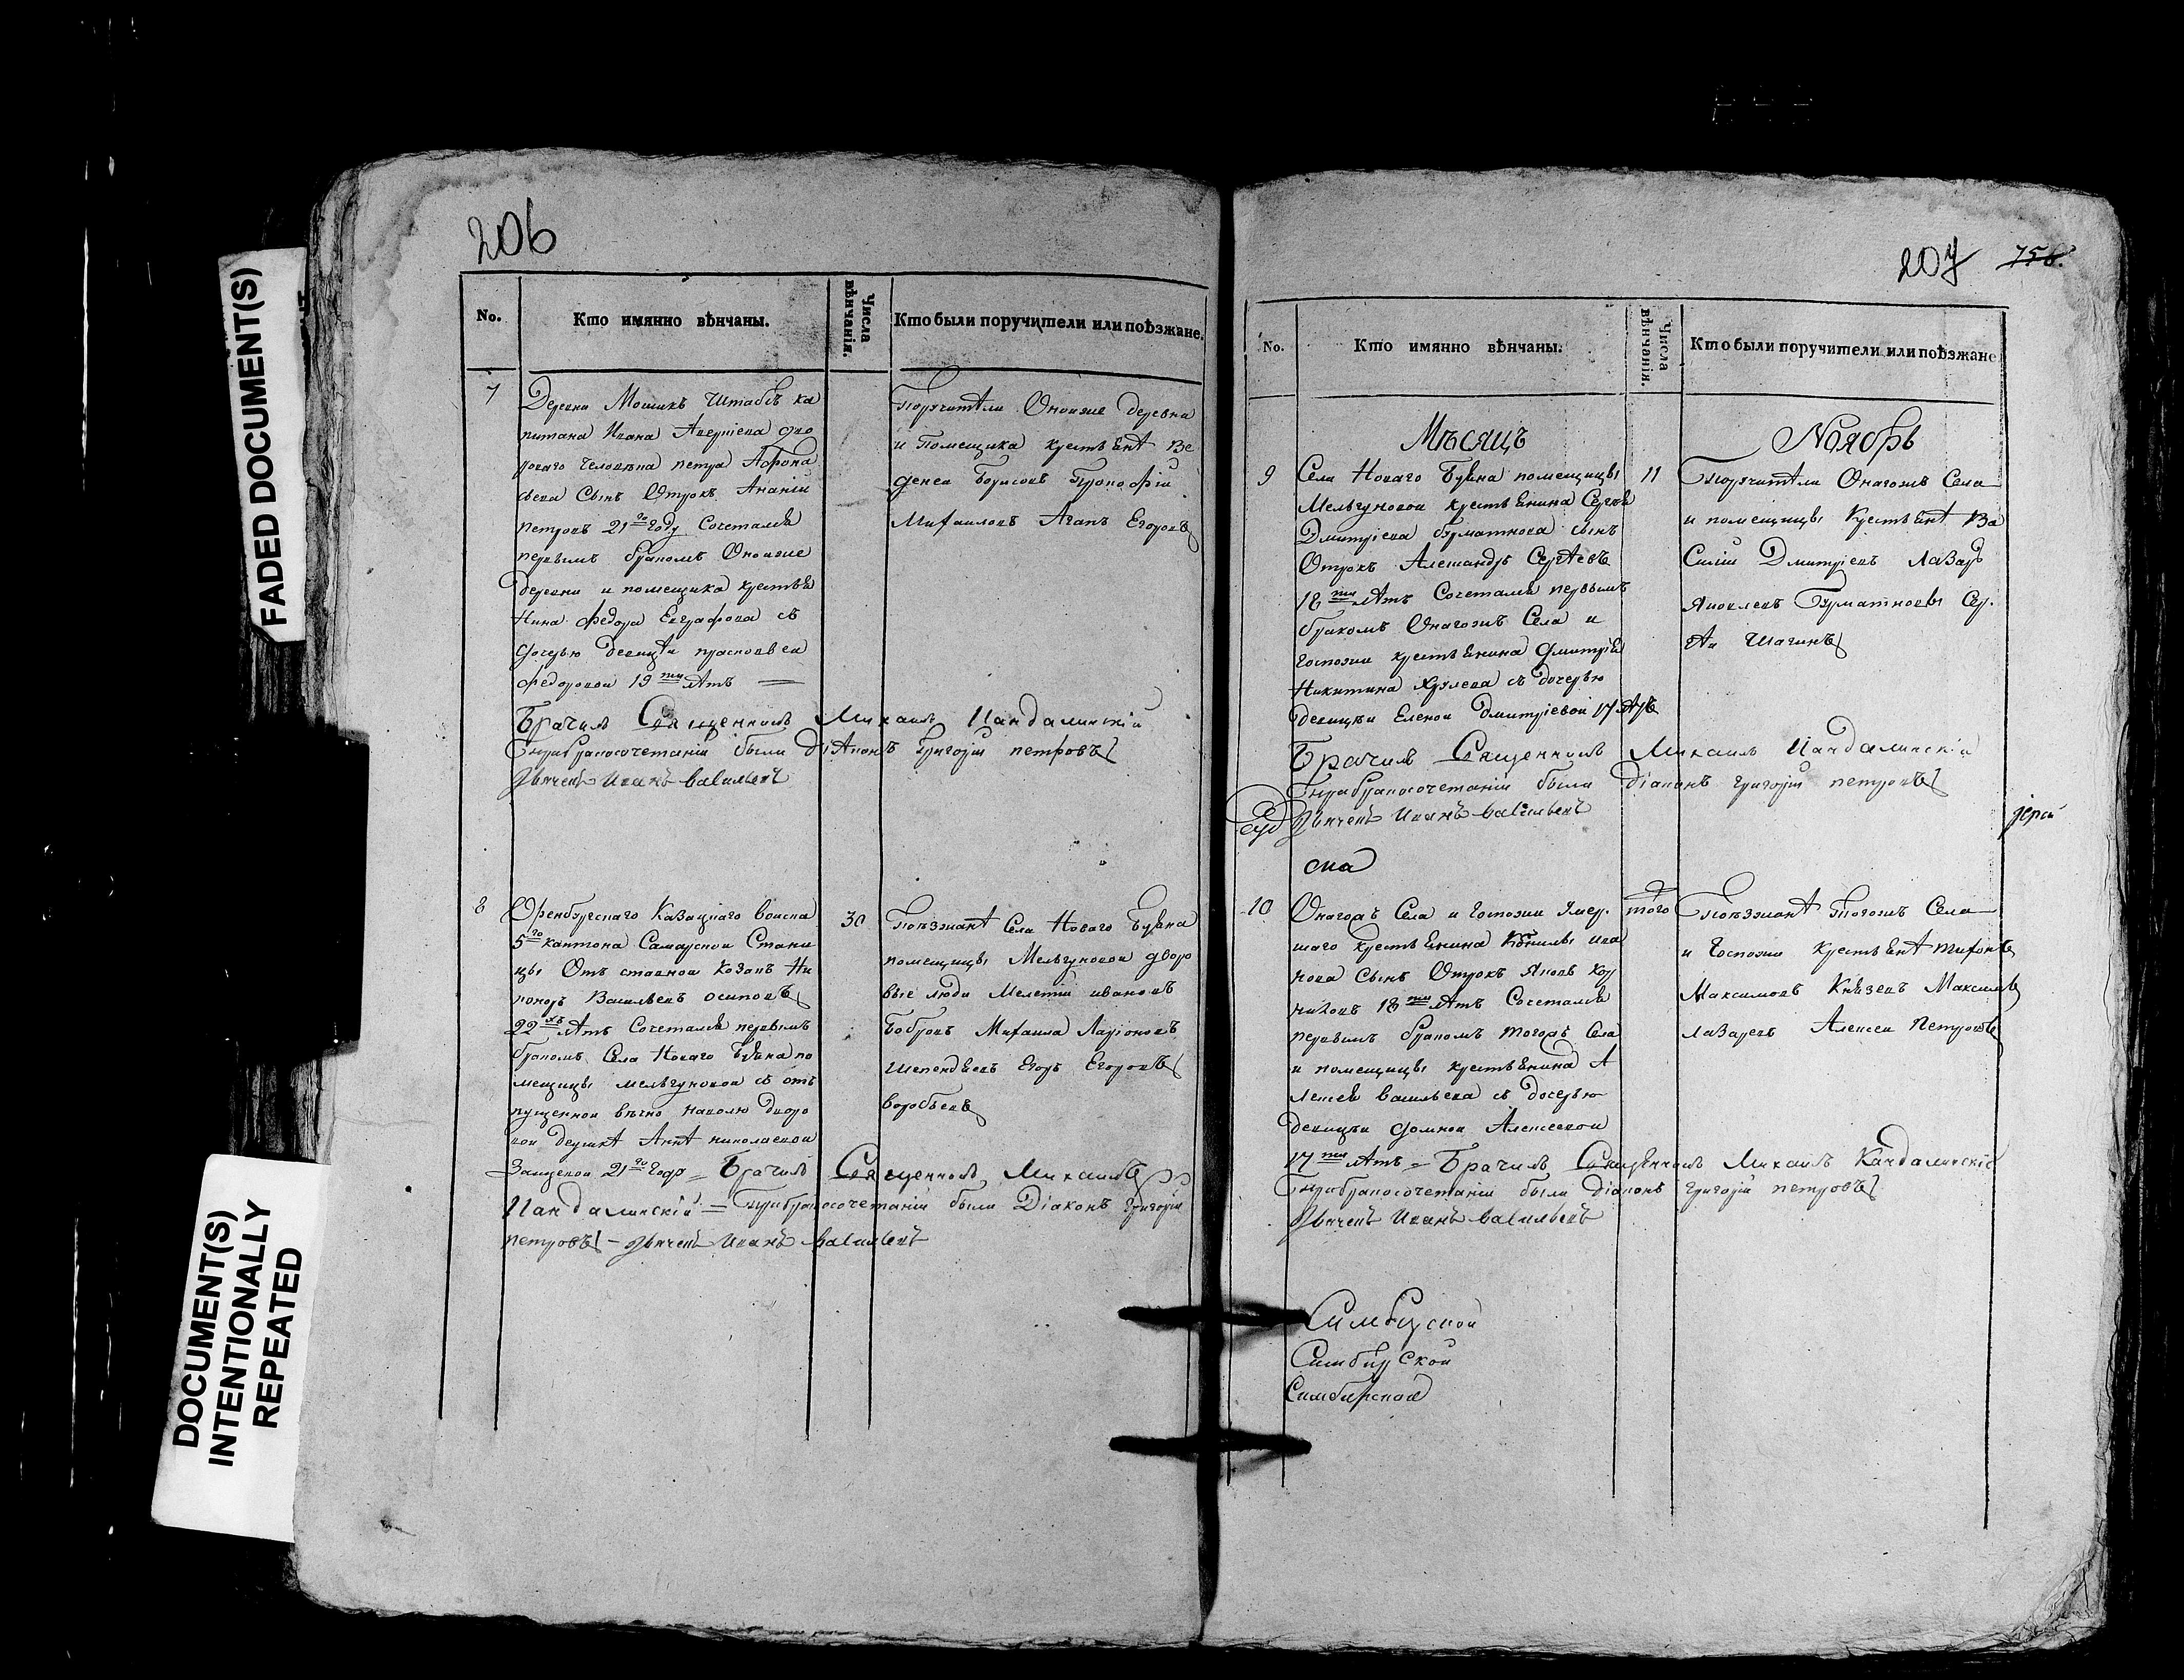 FADED DOCUMENT(S)
DOCUMENT(S)
INTENTIONALLY
REPEATED
206
No.
Кто имянно вѣнчаны.
Числа
вѣнчанія.
Кто были поручители или поѣзжане.
7
Деревни Мошкъ Штабсъ ка
питана Ивана Авериева дво
роваго человѣка петра Афона
сьева Сынъ Отрокъ Ананiй
петровъ 21го году Сочетался
первымъ бракомъ Оноиже
деревни и помещика крестья
нина федора Евграфова съ
дочерью девицѣи прасковьеи
федоровои 19ти лѣтъ
Поручители Оноиже деревни
и помещика крестьянѣ Ве
дение Борисовъ Прокофiй
Михаиловъ Агапъ Егоровъ
Брачилъ Священникъ Михаилъ Кандалинскiй
Прибракосочетанiи были Дiаконъ Григорiй петровъ
Дьячекъ Иванъ васильевъ
8
Оренбурскаго Казацкаго воиска
5го кантона Самарскои Стани
цы Отъ ставнои Козакъ Ни
коноръ Васильевъ осиповъ
22хъ лѣтъ Сочетался первымъ
бракомъ Села Новаго Буяна по
мещицы мельгуновои съ отъ
пущеннои вѣчно наволю дворо
вои девукѣ Аннѣ николаевои
Заицевои 21го году = Брачилъ Священникъ Михаилъ
Кандалинскiй = Прибракосочетанiи были Дiаконъ Григорiй
петровъ - Дьячекъ Иванъ васильевъ
30
Поѣзжанѣ Села Новаго Буяна
помещицы Мельгуновои дворо
вые люди Мелетiи ивановъ
Бобровъ Михаила Ларiоновъ
Шепендяевъ Егоръ Егоровъ
воробьевъ
207
756.
No.
Кто имянно вѣнчаны.
Числа
вѣнчанія.
Кто были поручители или поѣзжане
Мѣсяцъ
Ноябрь
9
Села Новаго Буяна помещицы
Мельгуновои крестьянина Сергѣя
Дмитрiева бурматнова сынъ
Отрокъ Александръ Сергѣевъ
18ти лѣтъ Сочетался первымъ
бракомъ Онагожъ Села и
госпожи крестьянина Дмитрiя
Никитина Хрулева съ дочерью
девицѣи Еленои Дмитрiевои 17 лѣтъ
11
Поручители Онагожъ Села
и помещицы Крестьянѣ Ва
Силiи Дмитрiевъ Лазарь
Яковлевъ Бурматновы Сер.
гѣи Шагинъ
Брачилъ Священникъ Михаилъ Кандалинскiй
Прибракосочетанiи были Дiаконъ григорiй петровъ
Дьячекъ Иванъ васильевъ
iереи
ска
10
Оногожъ Села и Госпожи Умер.
шаго крестьянина Корнилы ива
нова Сынъ Отрокъ Яковъ Кор
ниловъ 18ти лѣтъ Сочетался
первымъ бракомъ тогожъ Села
и помещицы крестьянина А
лексея васильева съ дочерью
девицѣи домнои Алексеевои
17ти лѣтъ = Брачилъ Священникъ Михаилъ Кандалинскiй
Прибракосочетанiи были дiаконъ григорiй петровъ
Дьячекъ Иванъ васильевъ
того
Поѣзжанѣ Тогожъ Села
и Госпожи крестьянѣ Тихонъ
Максимовъ Князевъ Максимъ
лазаревъ Алексеи Петровъ
Симбирскои
Симбирскои
Симбирскои